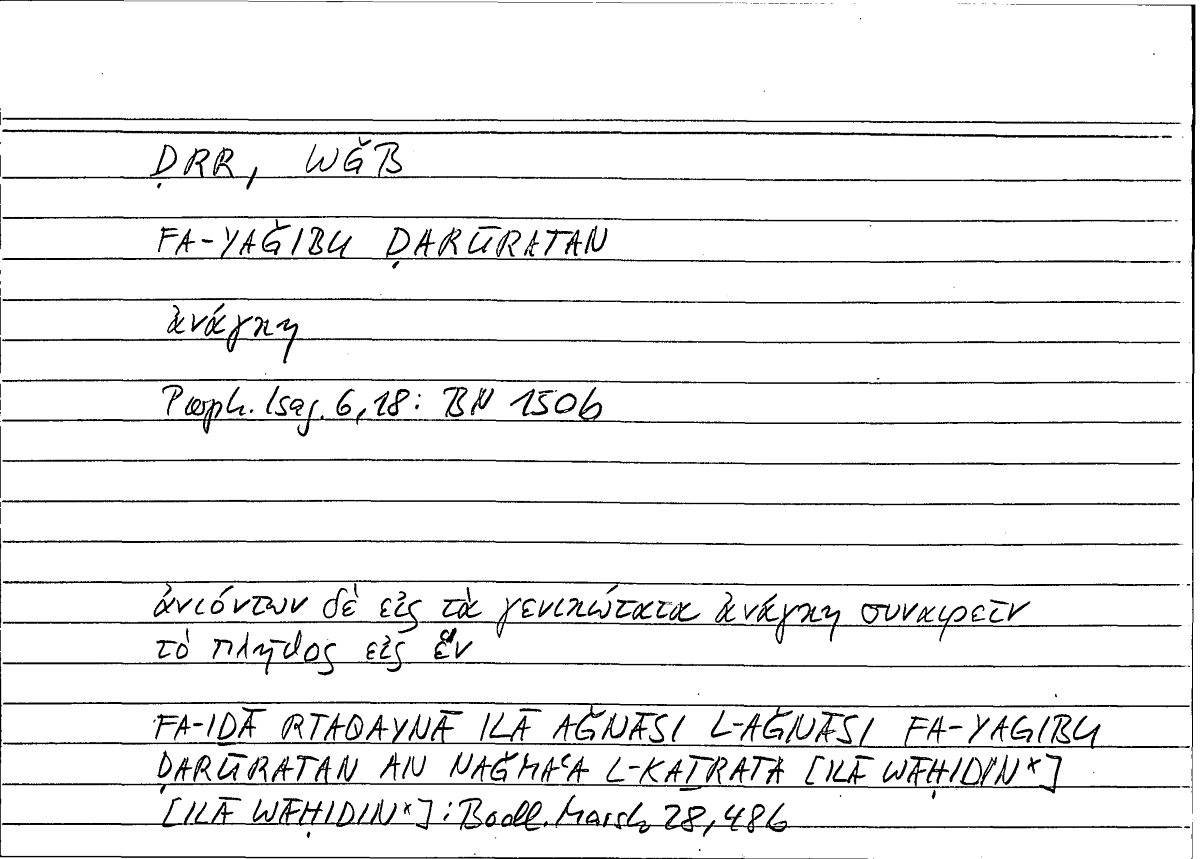 ḌRR, WĞB
FA-YAĞIBU ḌARŪRATAN
ἀνάγκη
Porph. Isag. 6,18: BN 150b
ἀνιόντων δὲ εἰς τὰ γενικώτατα ἀνάγκη συναιρεῖν
τὸ πλῆθος εἰς ἕν
FA-IḎĀ RTAQAYNĀ ILĀ AĞNĀSI L-AĞNĀSI FA-YAGIBU
ḌARŪRATAN AN NAĞMAʿA L-KAṮRATA [ILĀ WĀḤIDIN*]
[ILĀ WĀḤIDIN*]: Bodl. Marsh 28,48b